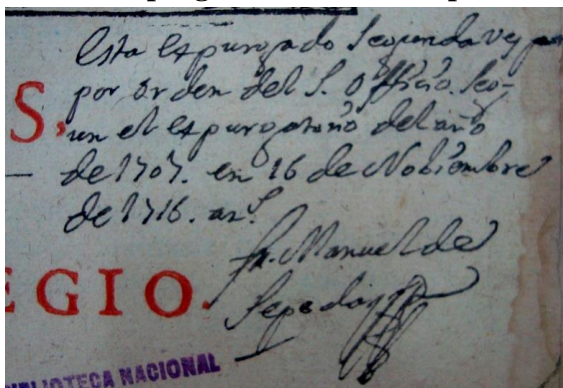 Esta expurgado segunda vez
por orden del S. Officio. seg-
un el expurgatorio del año
de 1707. en 16 de Nobiembre
de 1716. as.
Fr. Manuel de
Sepeda
S,
EGIO.
BIBLIOTECA NACIONAL